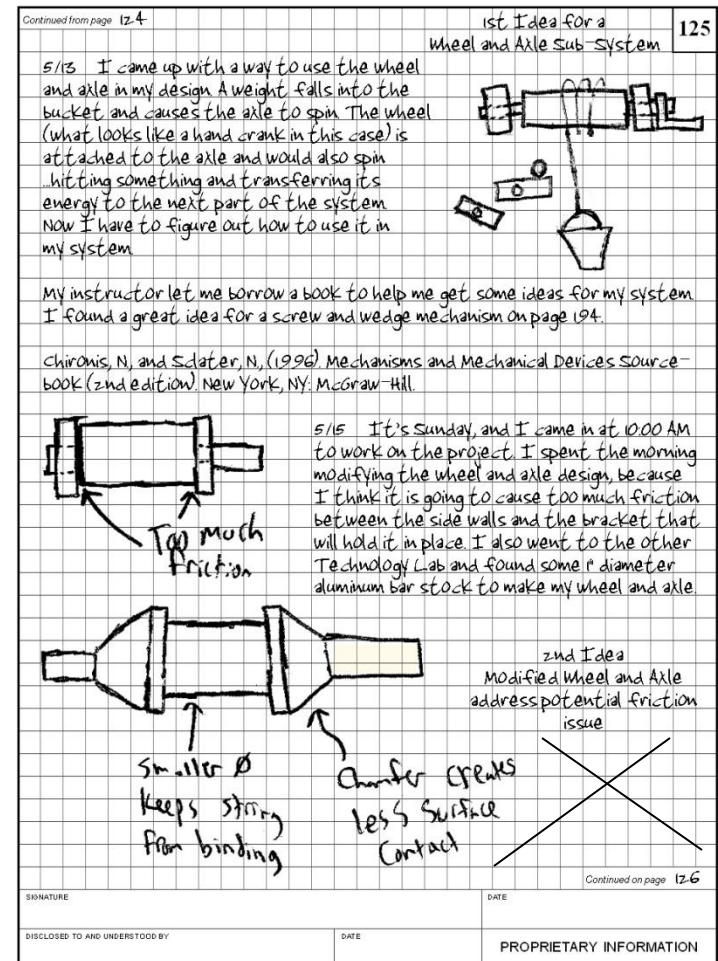 Continued from page 124
1st Idea for a
Wheel and Axle Sub-System
125
5/13 I came up with a way to use the wheel
and axle in my design. A weight falls into the
bucket and causes the axle to spin. The wheel
(what looks like a hand crank in this case) is
attached to the axle and would also spin
...hitting something and transferring its
energy to the next part of the system.
Now I have to figure out how to use it in
my system.
My instructor let me borrow a book to help me get some ideas for my system.
I found a great idea for a screw and wedge mechanism on page 194.
Chironis, N, and Sclater, N, (1996). Mechanisms and Mechanical Devices Source-
book (2nd edition). New York, NY: McGraw-Hill.
5/15 It's Sunday, and I came in at 10:00 AM
to work on the project. I spent the morning
modifying the wheel and axle design, because
I think it is going to cause too much friction
between the side walls and the bracket that
will hold it in place. I also went to the other
Technology Lab and found some 1" diameter
aluminum bar stock to make my wheel and axle.
Too much
friction
2nd Idea
Modified Wheel and Axle
address potential friction
issue
Smaller Ø
Keeps string
from binding
Chamfer creates
less surface
Contact
Continued on page 126
SIGNATURE
DATE
DISCLOSED TO AND UNDERSTOOD BY
DATE
PROPRIETARY INFORMATION